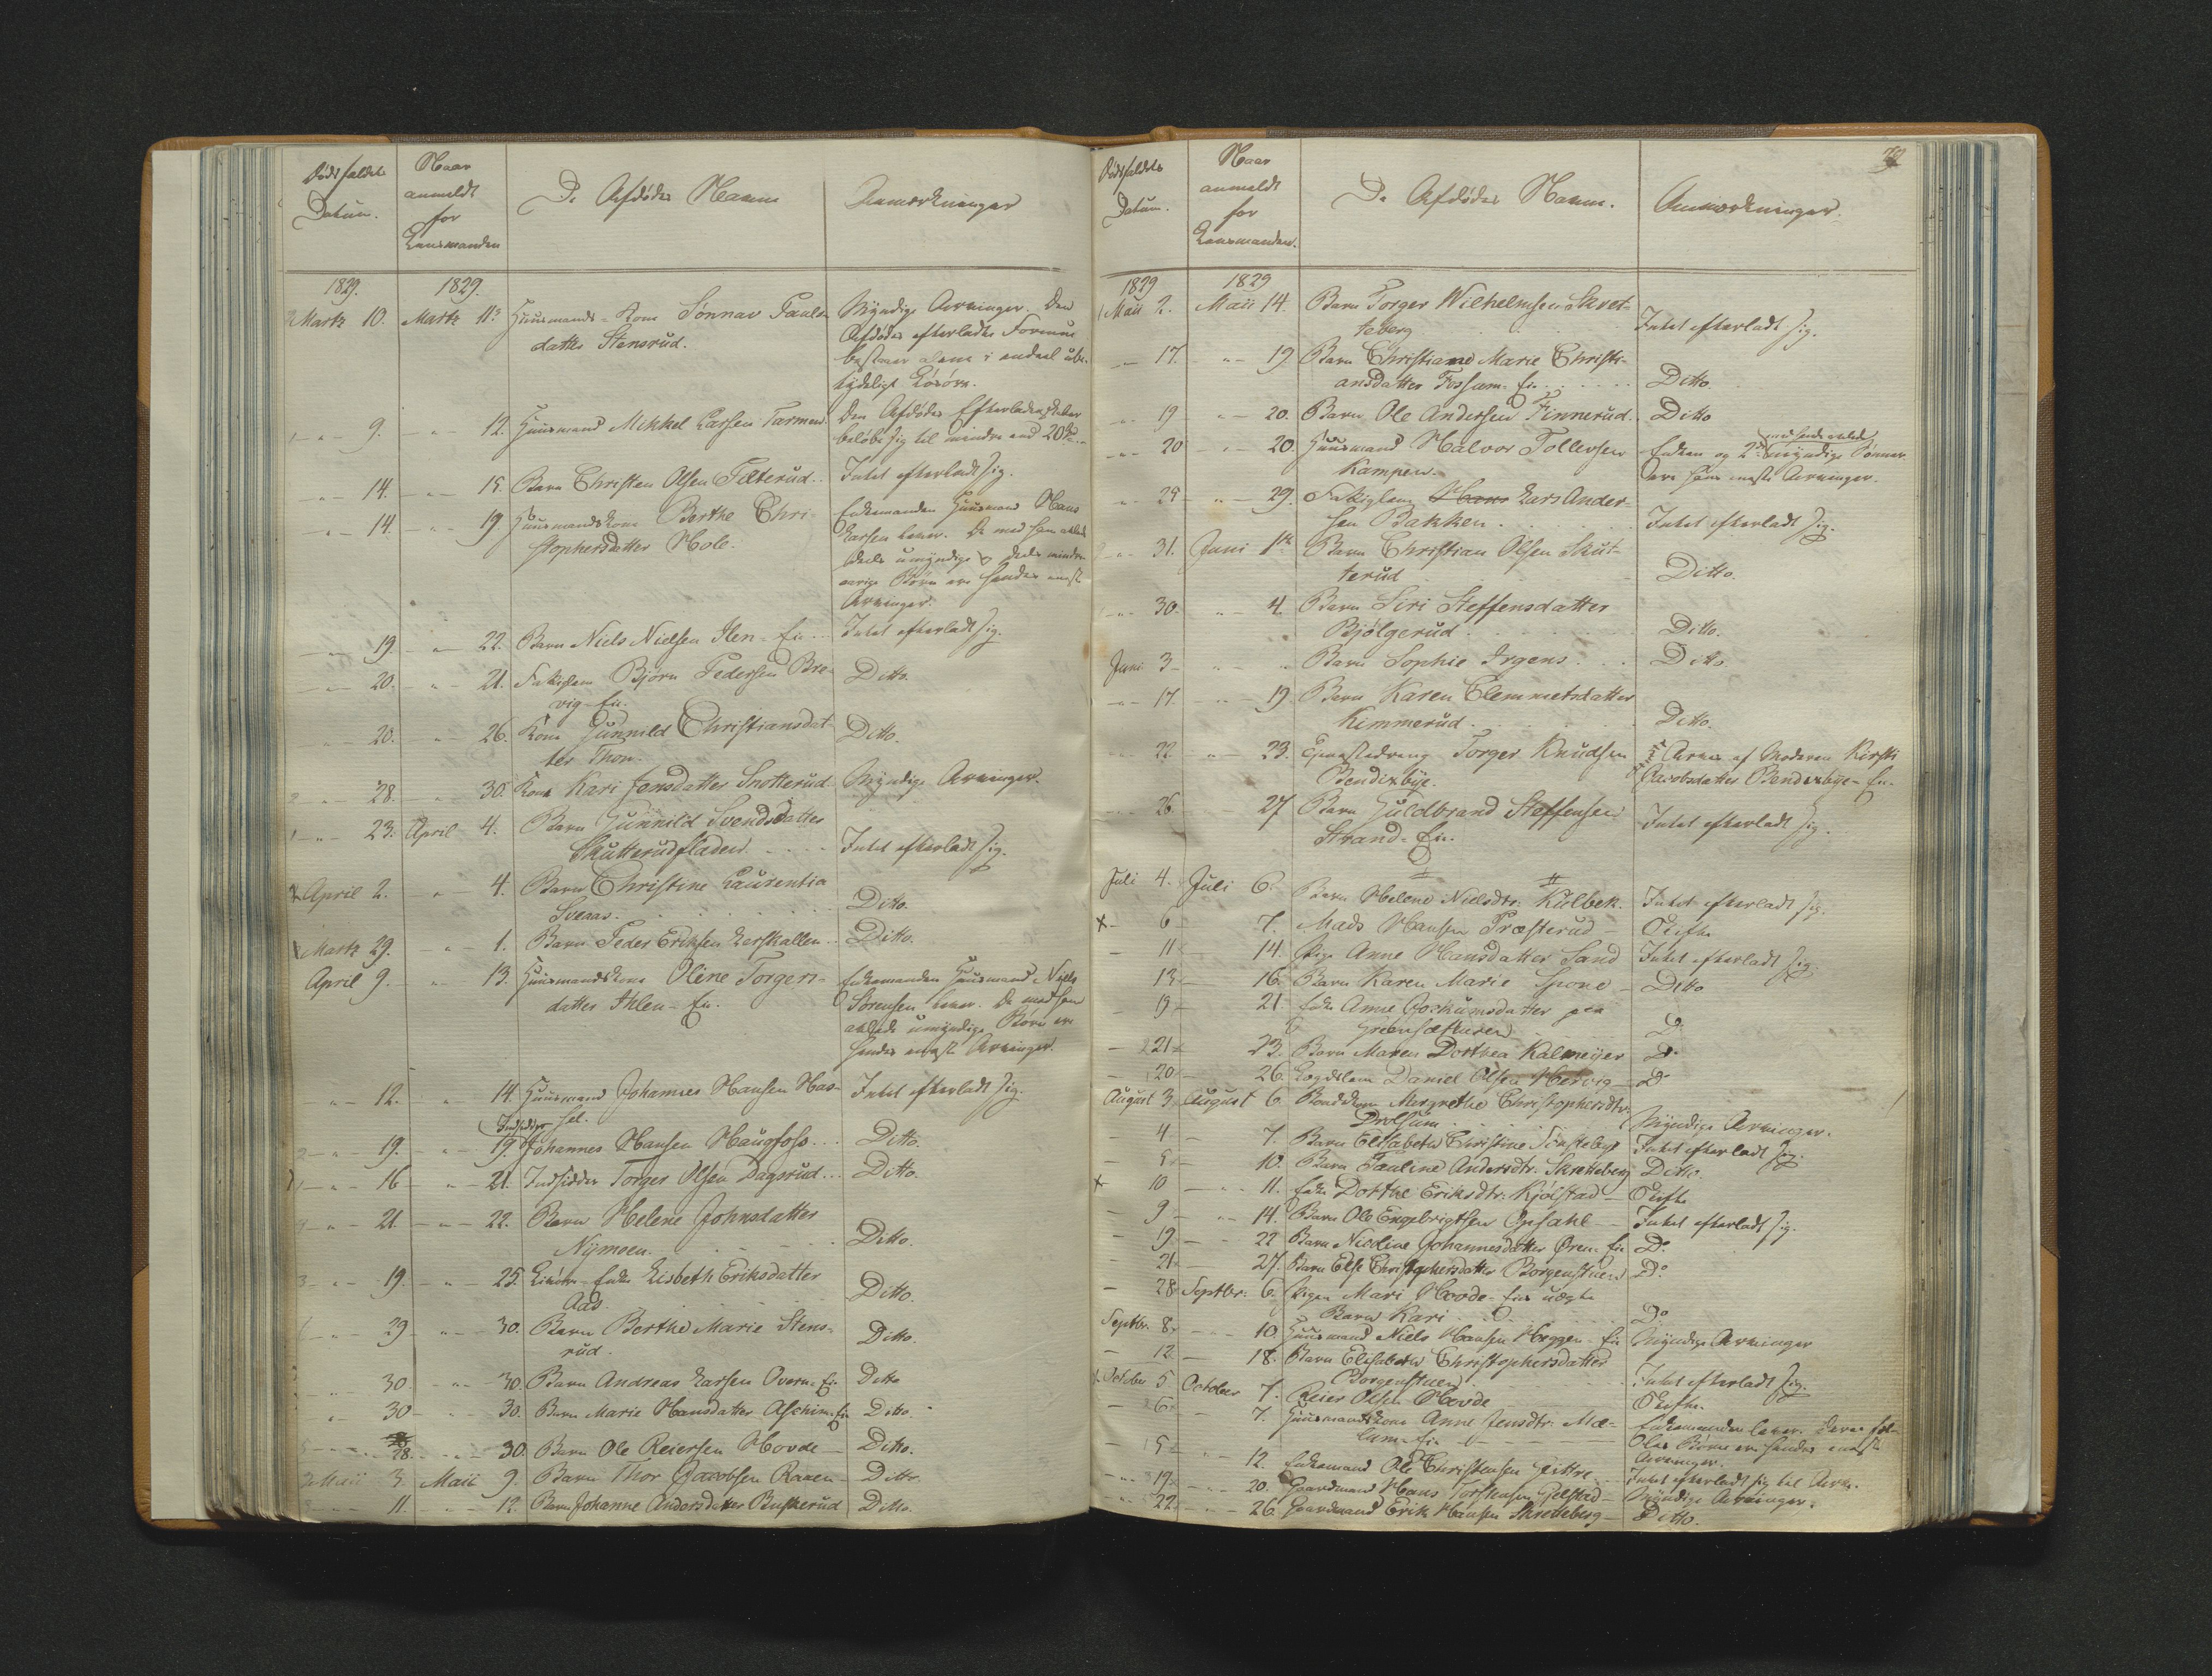 Dødsfaldets
Datum.
Naar
anmeldt
for
Lensmanden
De Afdødes Navne
Anmærkninger
1829.
1829.
Martz 10. Martz 11. Huusmands-Kone Sønnav Pauls-
datter Stensrud.
Myndige Arvinger. Den
Afdødes efterladte Formue
bestaaer alene i endeel ube-
tydeligt Løsøre.
" 9. " 12. Huusmand Mikkel Larsen
Den Afdødes Efterladenskaber
beløbe sig til mindre end 20
" 14. " 15. Barn Christen Olsen Tæterud. Intet efterladt sig.
" 14. " 19. Huusmandskone Berthe Chri-
stophersdatter Hole.
Enkemanden Huusmand Hans
Larsen lever. De med ham avlede
deels umyndige deels minder-
aarige Børn ere hendes eneste
Arvinger.
" 19. " 22. Barn Niels Nielsen Ilen-Ei. Intet efterladt sig.
" 20. " 21. Fattiglem Bjørn Pedersen Bre-
vig-Ei.
Ditto.
" 20. " 26. Kone Gunnild Christiansdat-
ter Thon.
Ditto.
" 28. " 30. Kone Kari Jensdatter Snotterud Myndige Arvinger.
" 23. April 4. Barn Gunnild Svendsdatter
Skutterudfladen
Intet efterladt sig.
April 2. " 4. Barn Christine Laurentia
Sveaas.
Ditto.
Martz 29. " 1. Barn Peder Eriksen Lerskallen Ditto.
April 9. " 13. Huusmandskone Oline Torgers-
datter Ihlen-Ei.
Enkemanden Huusmand Niels
Sørensen lever. De med ham
avlede umyndige Børn ere
hendes eneste Arvinger.
" 12. " 14. Huusmand Johannes Hansen Has-
sel.
Intet efterladt sig.
Indsidder
" 19. " 19. Johannes Hansen Haugfoss Ditto.
" 16 " 21. Indsidder Torger Olsen Dagsrud Ditto.
" 21. " 22. Barn Helene Johnsdatter
Nymoen.
Ditto.
" 19. " 25. Enke Lisbeth Eriksdatter
Aas.
Ditto.
" 29 " 30. Barn Berthe Marie Stens-
rud.
Ditto.
" 30. " 30. Barn Andreas Larsen Overn-Ei Ditto
" 30 " 30. Barn Marie Hansdatter Aschim-Ei Ditto.
28. " 30. Barn Ole Reiersen Hovde Ditto.
Maii 3. Maii 9. Barn Thor Jacobsen Raaen Ditto.
" 11. " 12. Barn Johanne Andersdatter Buskerud Ditto.
72
Dødsfaldets
Datum.
Naar
anmeldt
for
Lensmanden.
De Afdødes Navne.
Anmærkninger.
1829
1829
Maii 2. Maii 14. Barn Torger Wilhelmsen Skret-
teberg
Intet efterladt sig.
" 17. " 19. Barn Christiane Marie Christi-
ansdatter Fossum-Ei.
Ditto.
" 19 " 20. Barn Ole Andersen Finnerud. Ditto
" 20 " 20. Huusmand Halvor Tollevsen
Kampen.
med hende avlede
Enken og 2de myndige Sønner
ere hans eneste Arvinger.
" 29 " 29. Fattiglem Hans Lars Ander-
sen Bakken.
Intet efterladt sig.
" 31. Juni 1te Barn Christian Olsen Skut-
terud
Ditto.
" 30. " 4. Barn Siri Steffensdatter
Bjølgerud.
Ditto.
Juni 3 " " Barn Sophie Irgens. Ditto
" 17. " 19 Barn Karen Clemmetsdatter
Kimmerud.
Ditto.
" 22. " 23. Tjenestedreng Torger Knudsen
Bendixbye.
Arves af Moderen Kirsti
Jacobsdatter Bendixbye-Ei.
" 26. " 27 Barn Guldbrand Steffensen
Strand-Ei.
Intet efterladt sig.
Juli 4. Juli 6. Barn Helene Nielsdtr. Kulbek. Intet efterladt sig.
6 7. Mads Hansen Præsterud Skifte
11 14. Pige Anne Hansdatter Sand Intet efterladt sig.
13 16. Barn Karen Marie Spone Ditto
19 21 Enke Anne Jockumsdatter paa
Do
21 23. Barn Maren Dorthea Kalmeijer Do
20 26. Logdslem Daniel Olsen Hervig Do
August 3 August 6. Bondekone Margrethe Christophersdtr.
Drolsum
Myndige Arvinger.
4 7. Barn Elisabeth Christine Intet efterladt sig.
8 10. Barn Pauline Andersdtr. Skretteberg Ditto.
10 11. Enke Dorthe Eriksdtr. Kjølstad Skifte
9 14. Barn Ole Engebrigtsen Opsahl Intet efterladt sig.
19 22 Barn Nicoline Johannesdatter Øren-Ei Do
21 27. Barn Else Christophersdatter Borgenstuen Do
28 Septbr. 6. Pigen Mari Hovde-Eies uægte
Barn Kari
Do
Septbr. 8. 10. Huusmand Niels Hansen Heggen-Ei Myndige Arvinger
12 18. Barn Elisabeth Christophersdatter
Borgenstuen
Intet efterladt sig.
October 5 October 7. Reier Olsen Hovde Skifte.
6 7. Huusmandskone Anne Jensdtr. Mæ-
lum-Ei
Enkemanden lever.
Børn ere hendes eneste
Arvinger.
5 12. Enkemand Ole Christensen Intet efterladt sig til Arv.
17 20. Gaardmand Hans Torstensen Myndige Arvinger.
22. 26. Gaardmand Erik Hansen Skretteberg Ditto.